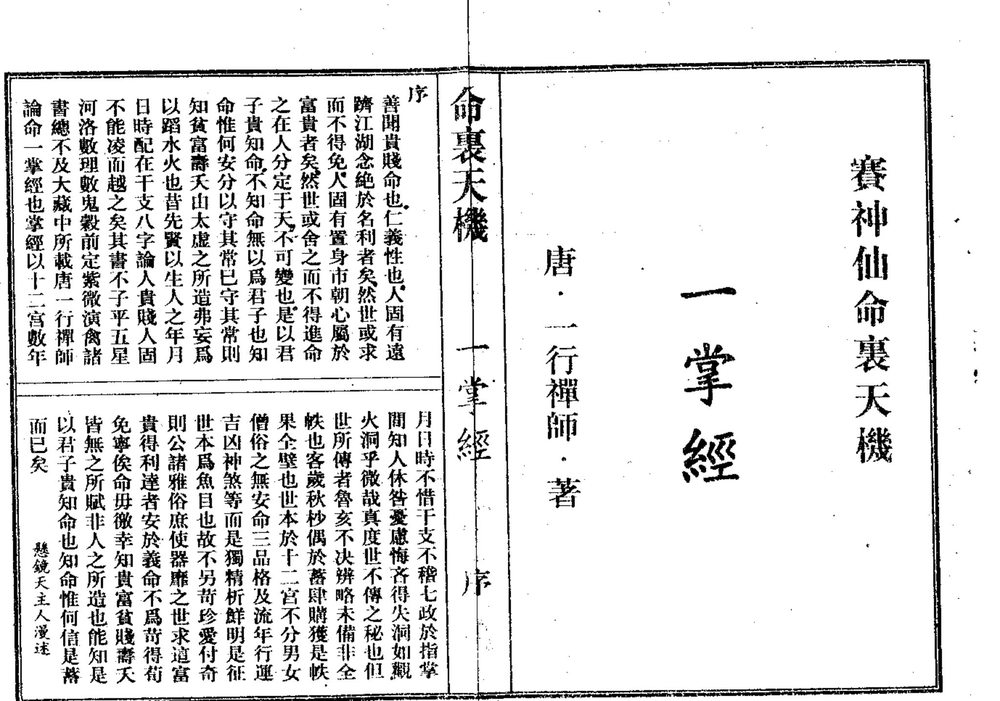 賽神仙命裏天機
一掌經
唐·一行禪師·著
命裏天機 一掌經 序
序
善聞貴賤命也仁義性也人固有遠
躋江湖念絕於名利者矣然世或求
而不得免人固有置身市朝心屬於
富貴者矣然世或舍之而不得進命
之在人分定于天不可變也是以君
子貴知命不知命無以爲君子也知
命惟何安分以守其常巳守其常則
知貧富壽夭山太虛之所造弗妄爲
以蹈水火也昔先賢以生人之年月
日時配在干支八字論人貴賤人固
不能凌而越之矣其書不子平五星
河洛數理數鬼穀前定紫微演禽諸
書總不及大藏中所載唐一行禪師
論命一掌經也掌經以十二宮數年
月日時不惜干支不稽七政於指掌
間知人休咎憂慮悔吝得失洞如觀
火洞乎微哉真度世不傳之秘也但
世所傳者魯亥不决辨略未備非全
帙也客歲秋杪偶於蓄肆購獲是帙
果全壁也世本於十二宮不分男女
僧俗之無安命三品格及流年行運
吉凶神煞等而是獨精析鮮明是征
世本爲魚目也故不另苛珍愛付奇
則公諸雅俗庶使器靡之世求這富
貴得利達者安於義命不爲苛得荀
免寧俟命毋徼幸知貴富貧賤壽夭
皆無之所賦非人之所造也能知是
以君子貴知命也知命惟何信是蓄
而巳矣
懸鏡天主人漫述